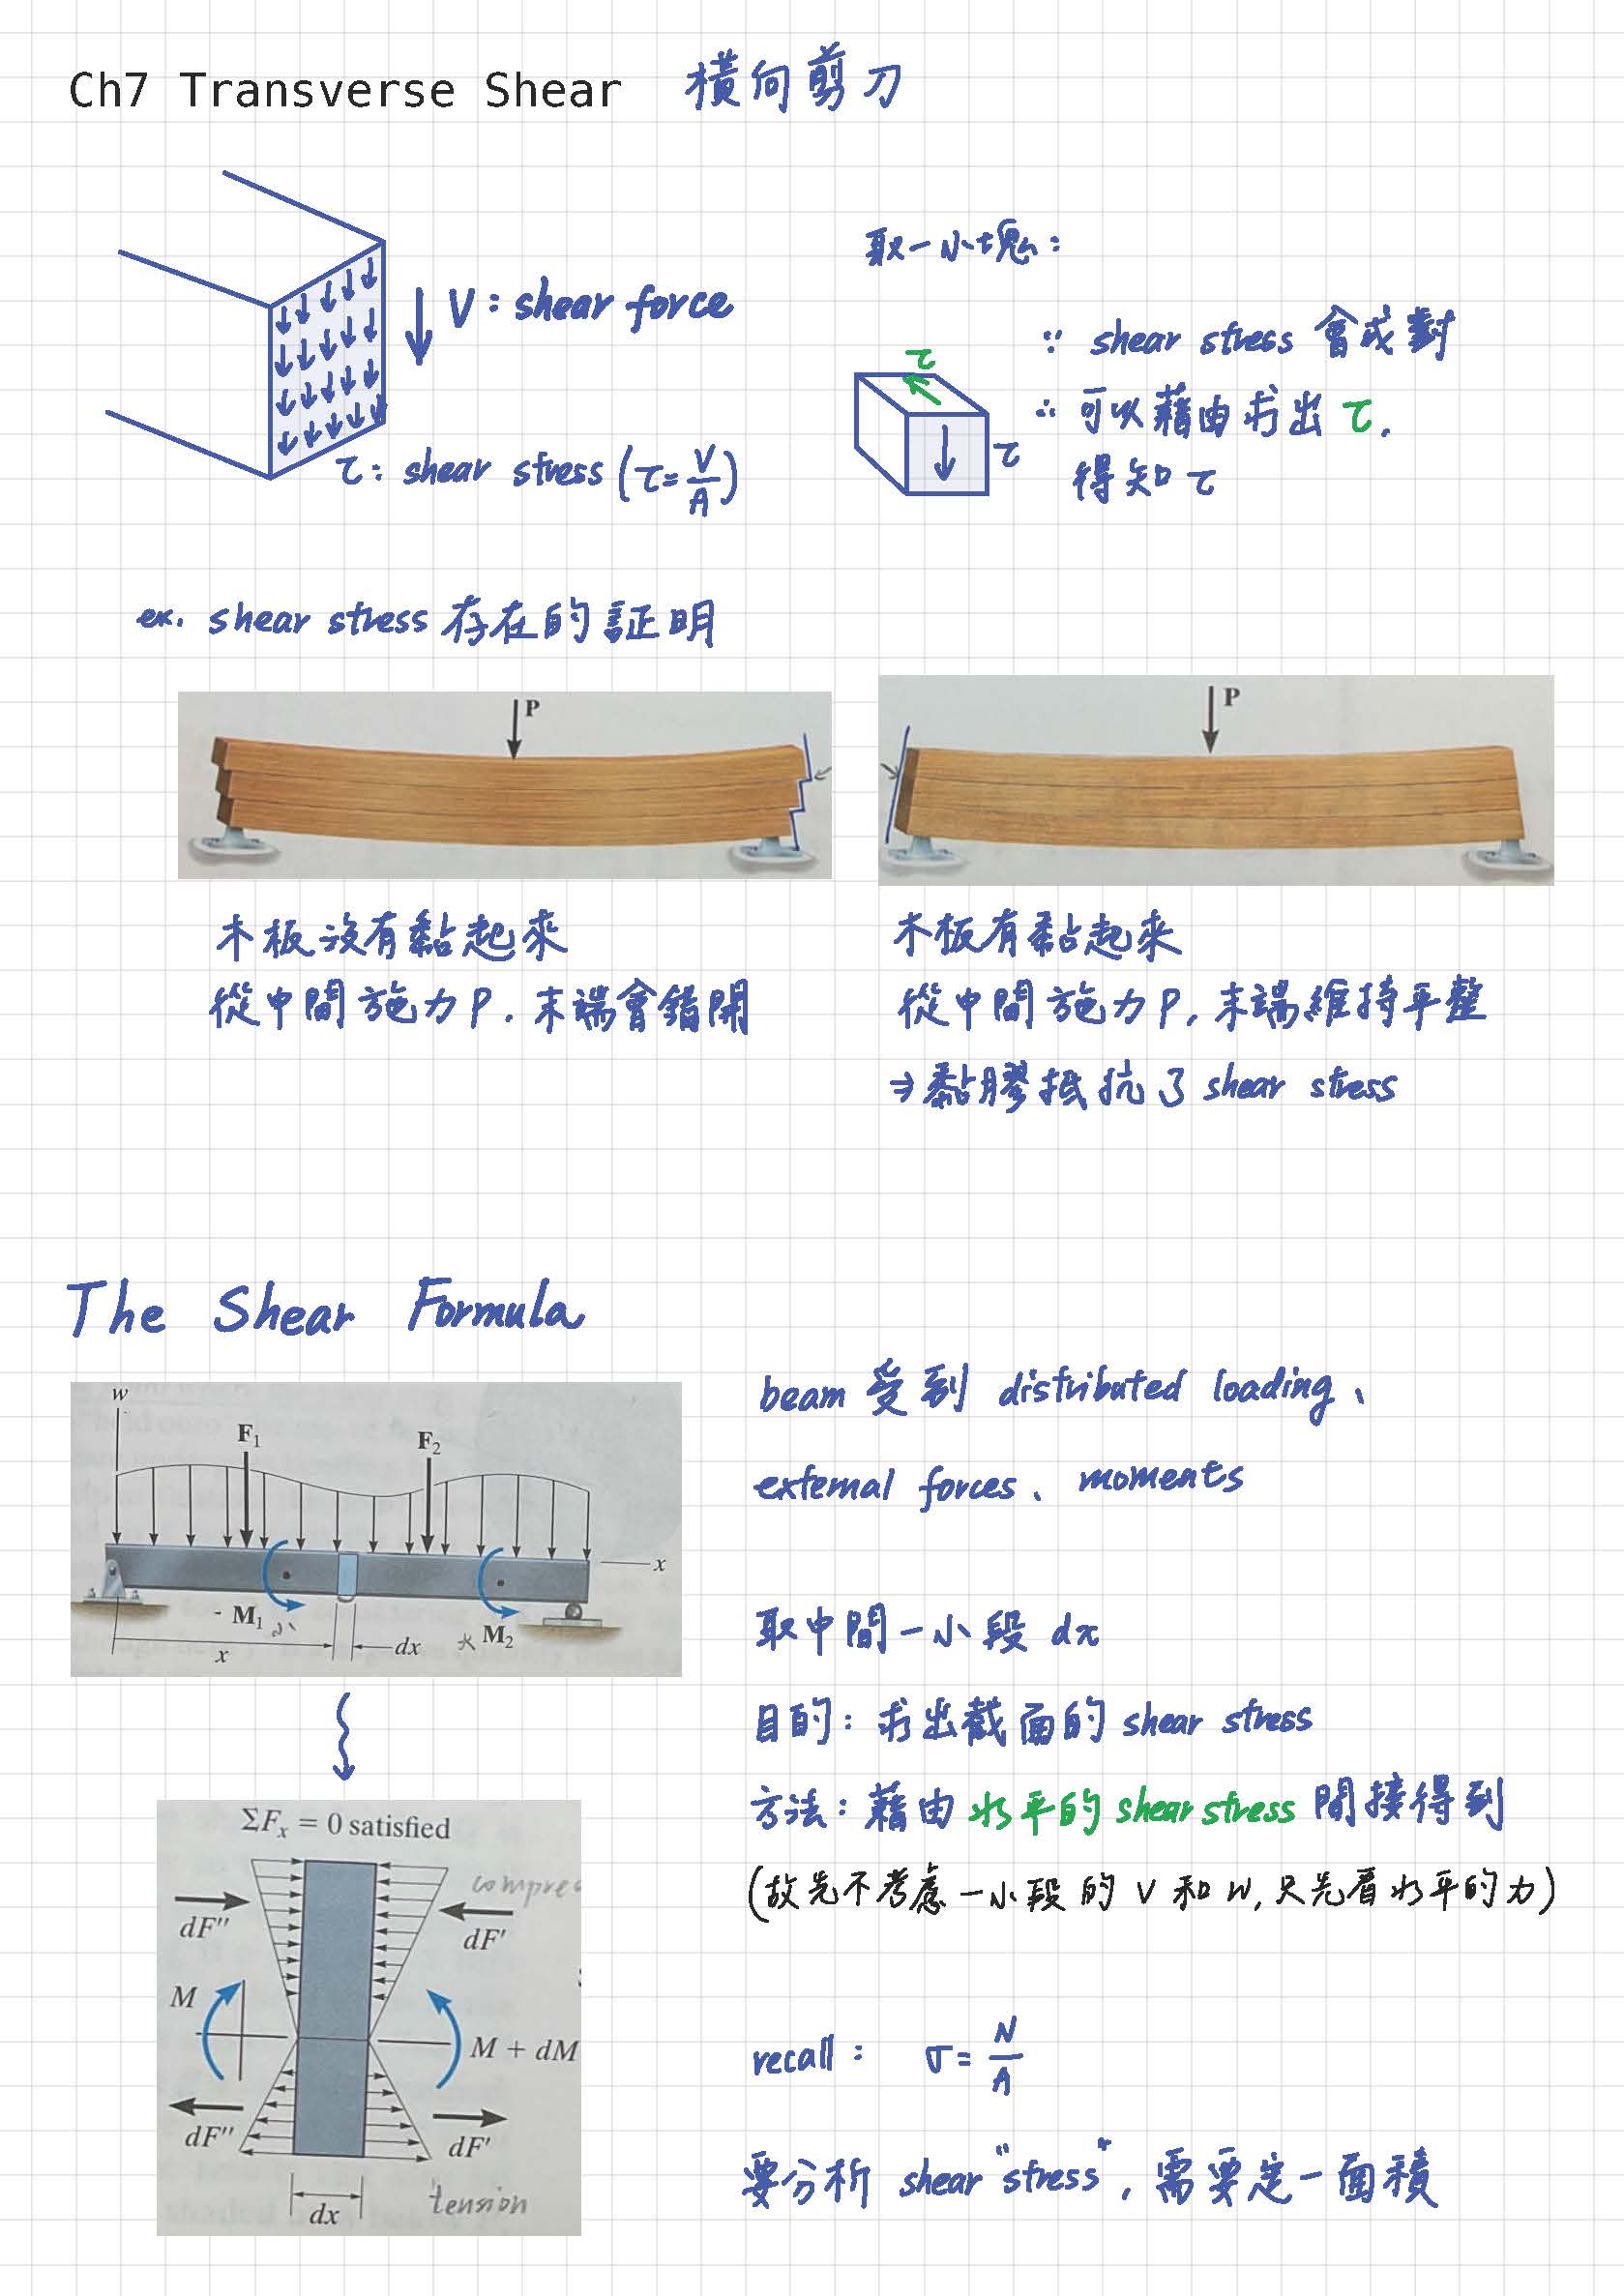 Ch7 Transverse Shear 橫向剪刀
V : shear force
τ : shear stress (τ = V/A)
取一小塊 :
τ
τ
∵ shear stress 會成對
∴ 可以藉由求出 τ,
得知 τ
ex. shear stress 存在的証明
P
P
木板沒有黏起來
從中間施力 P, 末端會錯開
木板有黏起來
從中間施力 P, 末端維持平整
⇒ 黏膠抵抗了 shear stress
The Shear Formula
w
F₁
F₂
x
M₁
M₂
x
dx
beam 受到 distributed loading、
external forces、moments
取中間一小段 dx
目的 : 求出截面的 shear stress
方法 : 藉由水平的 shear stress 間接得到
(故先不考慮一小段的 V 和 W, 只先看水平的力)
ΣFₓ = 0 satisfied
compre
dF″
dF′
M
M + dM
dF″
dF′
dx
tension
recall : σ = N/A
要分析 shear "stress", 需要定一面積